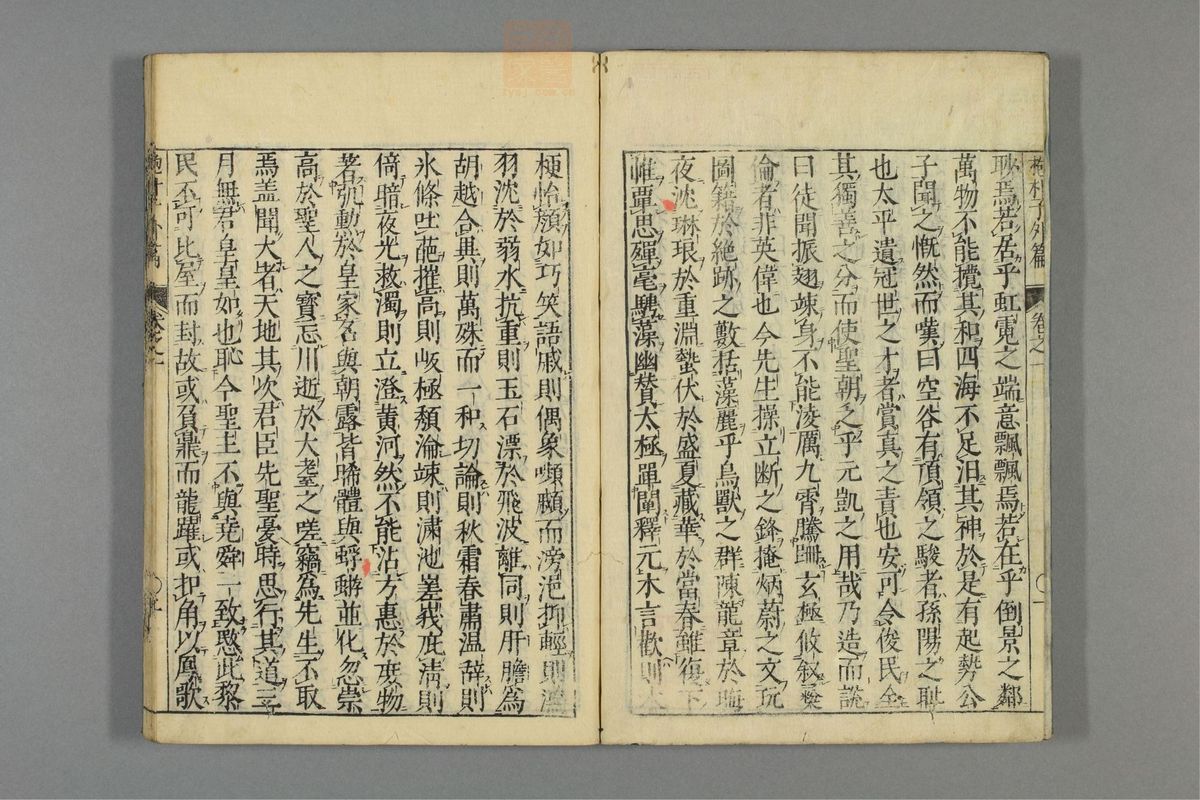 抱朴子外篇 卷之一
眇焉若居乎虹霓之端意飄飄焉若在乎倒景之鄰
萬物不能攪其和四海不足汨其神於是有赴勢公
子聞之慨然而嘆曰空谷有項領之駿者孫陽之恥
也太平遺冠世之才者賞真之責也安可令俊民全
其獨善之分而使聖朝乏乎元凱之用哉乃造而說
曰徒聞振翅竦身不能淩厲九霄騰跚玄極攸叙彝
倫者非英偉也今先生操立断之鋒掩炳蔚之文玩
圖籍於絶跡之藪括藻麗乎鳥獸之群陳龍章於晦
夜沈琳琅於重淵蟄伏於盛夏藏華於當春雖復下
帷覃思殫毫騁藻幽賛太極闡釋元本言歡則木
梗怡顔如巧笑語戚則偶象嚬顣而滂沱抑輕則鴻
羽沈於弱水抗重則玉石漂於飛波離同則肝膽為
胡越合異則萬殊而一和切論則秋霜春肅温辞則
氷條吐葩摧高則峻極頽淪竦則瀟池峩庛清則
倚暗夜光救濁則立澄黄河然不能沾方惠於庶物
著勛於皇家名與朝露皆晞體與蜉蝣並化忽崇
高於聖人之寶忘川逝於大耋之嗟竊為先生不取
焉盖聞大者天地其次君臣先聖憂時思行其道三
月無君皇皇如也恥今聖主不與堯舜一致愍此黎
民不可比屋而封故或負鼎而龍躍或扣角以鳳歌